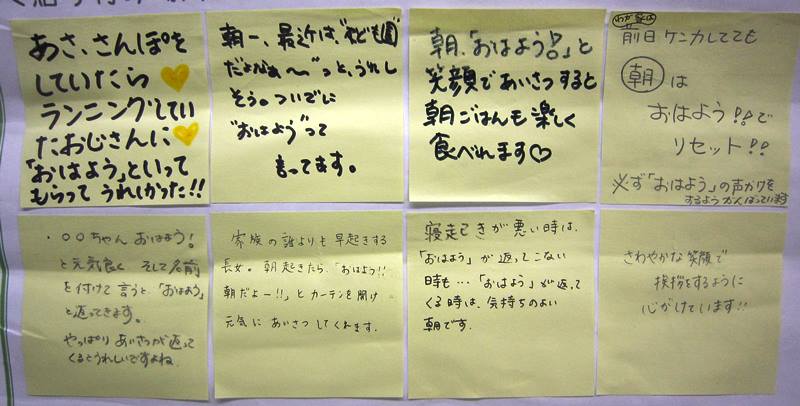 あさ、さんぽを
していたら
ランニングしてい
たおじさんに
「おはよう」といって
もらって うれしかった!!
朝一、最近は、
だよなぁ〜"っと、うれし
そう。ついでに
"おはよう"って
言ってます。
朝、「おはよう!」と
笑顔であいさつすると
朝ごはんも楽しく
食べれます♡
わが家は
前日ケンカしてても
朝は
おはよう!!で
リセット!!
必ず「おはよう」の声かけを
するようがんばっています
・○○ちゃん おはよう!
と元気良く そして名前
を付けて言うと、「おはよう」
と返ってきます。
やっぱりあいさつが返って
くるとうれしいですよね
家族の誰よりも早起きする
長女。朝起きたら、「おはよう!!
朝だよー!!」とカーテンを開け
元気にあいさつしてくれます。
寝起きが悪い時は、
「おはよう」が返ってこない
時も…「おはよう」が返って
くる時は、気持ちのよい
朝です。
さわやかな笑顔で
挨拶をするように
心がけています!!